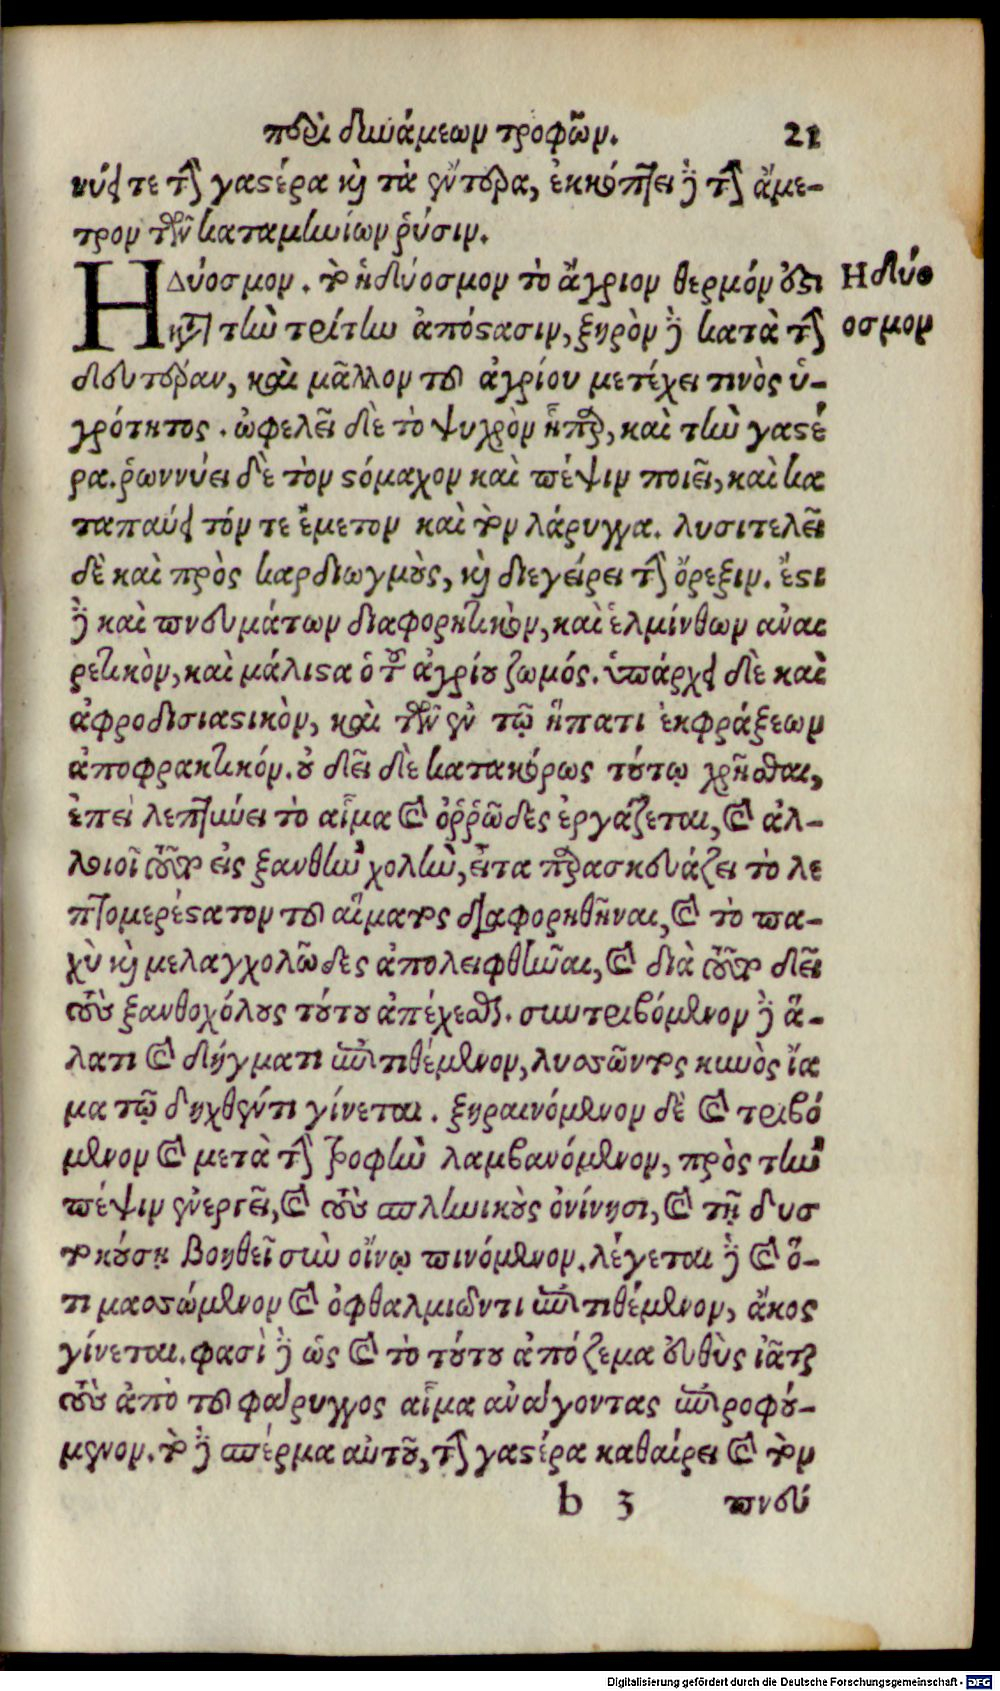 περὶ δυνάμεων τροφῶν. 21
νύει τε τὴν γαστέρα καὶ τὰ ἔντερα, ἐκκόπτει δὲ τὴν ἄμε-
τρον τῶν καταμηνίων ῥύσιν.
ΗΔύοσμον. τὸ ἡδύοσμον τὸ ἄγριον θερμόν ἐστι
κατὰ τὴν τρίτην ἀπόστασιν, ξηρὸν δὲ κατὰ τὴν
δευτέραν, καὶ μᾶλλον τοῦ ἀγρίου μετέχει τινὸς ὑ-
γρότητος. ὠφελεῖ δὲ τὸ ψυχρὸν ἧπαρ, καὶ τὴν γαστέ
ρα. ῥωννύει δὲ τὸν στόμαχον καὶ πέψιν ποιεῖ, καὶ κα
ταπαύει τόν τε ἔμετον καὶ τὸν λάρυγγα. λυσιτελεῖ
δὲ καὶ πρὸς καρδιωγμοὺς, καὶ διεγείρει τὴν ὄρεξιν. ἔστι
δὲ καὶ πνευμάτων διαφορητικὸν, καὶ ἑλμίνθων ἀναι
ρετικὸν, καὶ μάλιστα ὁ τοῦ ἀγρίου ζωμός. ὑπάρχει δὲ καὶ
ἀφροδισιαστικὸν, καὶ τῶν ἐν τῷ ἥπατι ἐκφράξεων
ἀποφρακτικόν. οὐ δεῖ δὲ κατακόρως τούτῳ χρῆσθαι,
ἐπεὶ λεπτύνει τὸ αἷμα καὶ ὀῤῥῶδες ἐργάζεται, καὶ ἀλ-
λοιοῖ τοῦτο εἰς ξανθὴν χολὴν, εἶτα παρασκευάζει τὸ λε
πτομερέστατον τοῦ αἵματος διαφορηθῆναι, καὶ τὸ πα-
χὺ καὶ μελαγχολῶδες ἀπολειφθῆναι, καὶ διὰ τοῦτο δεῖ
τοὺς ξανθοχόλους τούτου ἀπέχεσθαι. συντριβόμενον δὲ ἅ-
λατι καὶ δήγματι ἐπιτιθέμενον, λυσσῶντος κυνὸς ἴα
μα τῷ δηχθέντι γίνεται. ξηραινόμενον δὲ καὶ τριβό
μενον καὶ μετὰ τὴν τροφὴν λαμβανόμενον, πρὸς τὴν
πέψιν ἐνεργεῖ, καὶ τοὺς σπληνικοὺς ὀνίνησι, καὶ τῇ δυσ
τοκούσῃ βοηθεῖ σὺν οἴνῳ πινόμενον. λέγεται δὲ καὶ ὅ-
τι μασσώμενον καὶ ὀφθαλμιῶντι ἐπιτιθέμενον, ἄκος
γίνεται. φασὶ δὲ ὡς καὶ τὸ τούτου ἀπόζεμα εὐθὺς ἰᾶται
τοὺς ἀπὸ τοῦ φάρυγγος αἷμα ἀνάγοντας ἐπιροφού-
μενον. τὸ δὲ σπέρμα αὐτοῦ, τὴν γαστέρα καθαίρει καὶ τὸν
b 3 πνεύ
Ηδύο
οσμον
Digitalisierung gefördert durch die Deutsche Forschungsgemeinschaft - DFG